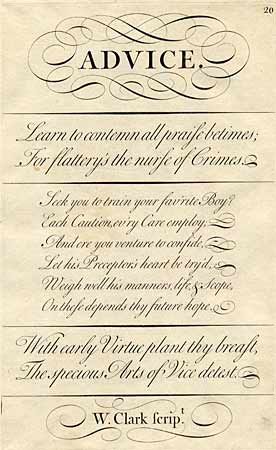 20
ADVICE.
Learn to contemn all praiſe betimes;
For flattery's the nurſe of Crimes.
Seek you to train your fav'rite Boy?
Each Caution, ev'ry Care employ,
And ere you venture to confide,
Let his Preceptor's heart be try'd,
Weigh well his manners, life, & Scope,
On theſe depends thy future hope.
With early Virtue plant thy breaſt,
The specious Arts of Vice detest.
W. Clark ſcript.